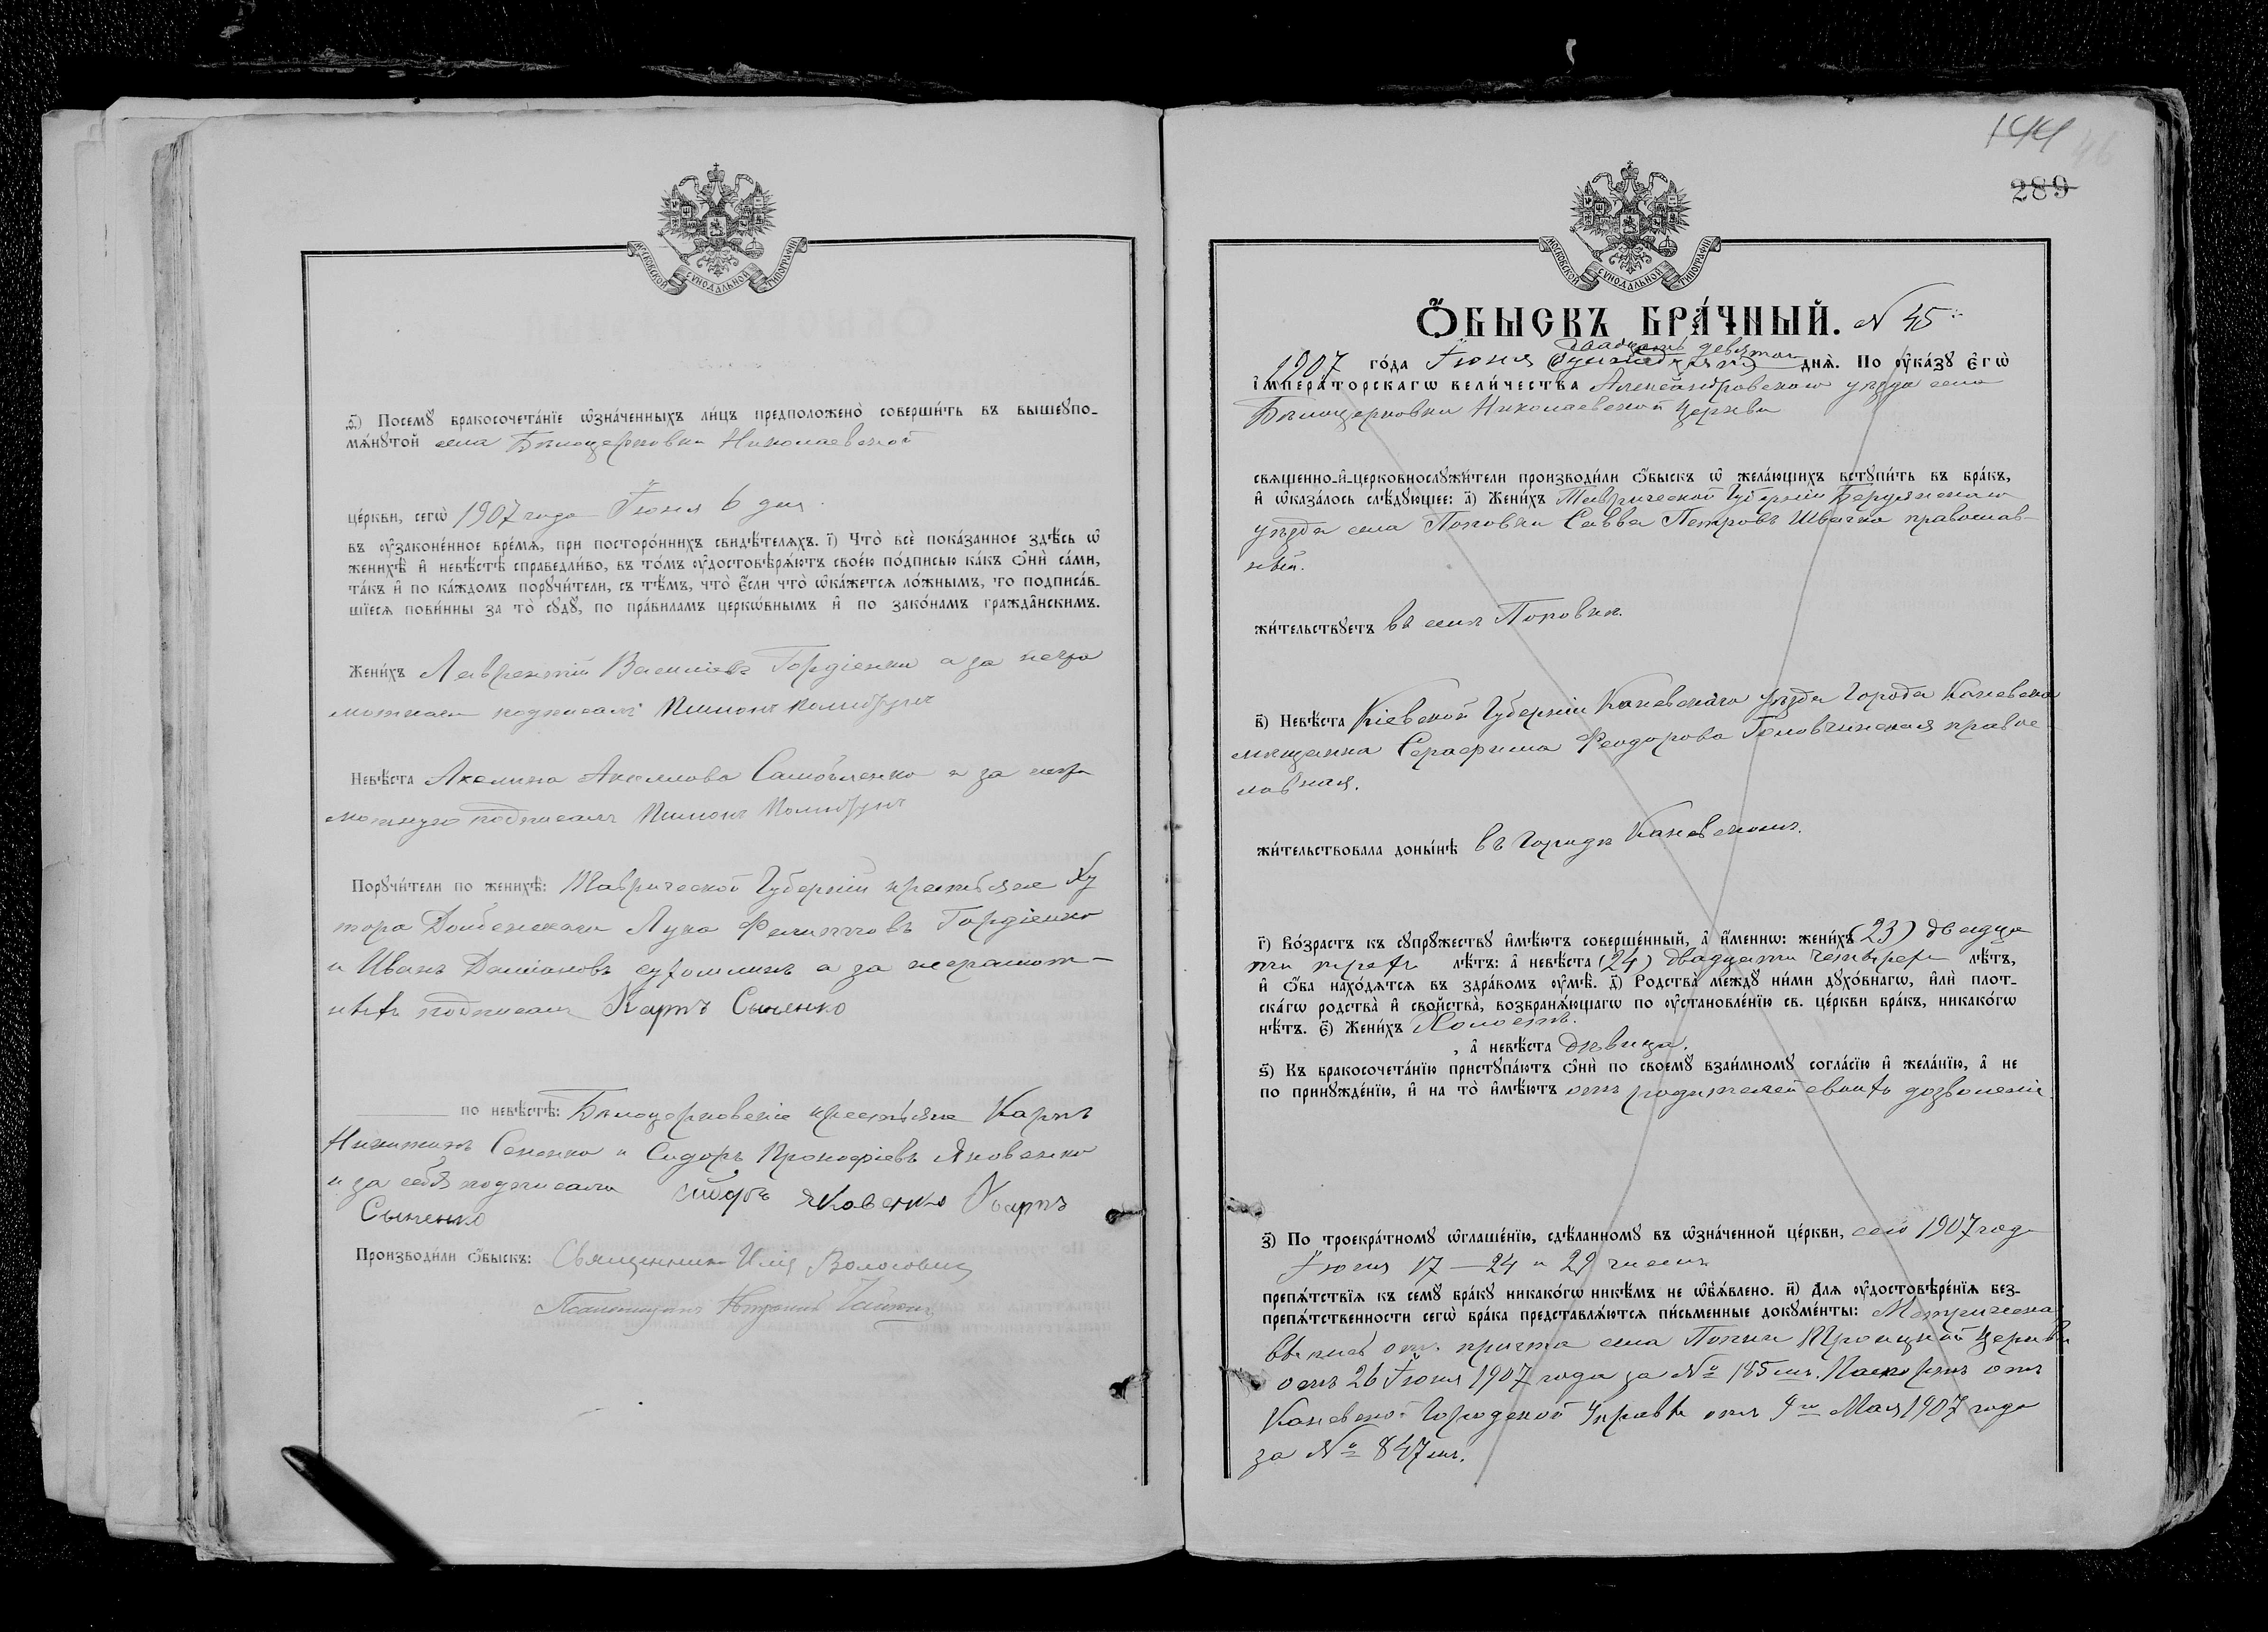 МОСКОВСКОЙ СѴНОДАЛЬНОЙ ТИПОГРАФІИ
ѳ҃) Посемꙋ бракосочета́нїе ѡ҆зна́ченныхъ ли́цъ предположено̀ соверши́ть въ вышеꙋпо-
мѧ́нꙋтой села Бѣлоцерковки Николаевской
це́ркви, сегѡ̀ 1907 года Іюня 6 дня
въ ᲂу҆законе́нное вре́мѧ, при посторо́ннихъ свидѣ́телѧхъ. і҃) Что̀ всѐ пока́занное здѣ́сь ѡ҆
женихѣ̀ и҆ невѣ́стѣ справедли́во, въ то́мъ ᲂу҆достовѣрѧ́ютъ свое́ю по́дписью ка́къ ѻ҆нѝ са́ми,
та́къ и҆ по ка́ждомъ порꙋчи́тели, съ тѣ́мъ, что̀ є҆́сли что̀ ѡ҆ка́жетсѧ ло́жнымъ, то подписа́в-
шїесѧ пови́нны за то̀ сꙋдꙋ̀, по пра́виламъ церкѡ́внымъ и҆ по зако́намъ гражда̑нскимъ.
Жени́хъ Лаврентій Василіевъ Гордіенко а за негра
мотнаго подписалъ
Невѣ́ста Акилина Самойленко а за негра
мотную подписалъ
Порꙋчи́тели по женихѣ̀: Таврической Губерніи крестьяне Ху
тора Лука Филипповъ Гордіенко
и Иванъ Даміановъ а за неграмот-
ныхъ подписалъ Карпъ Сыненко
по невѣ́стѣ: Бѣлоцерковскіе крестьяне Карпъ
Никитинъ Сененко и Сидоръ Прокофіевъ Яковенко
и за себя подписали Сидоръ Яковенко Карпъ
Сыненко
Производи́ли ѻ҆́быскъ: Священникъ Илія Волосович
Псаломщикъ
144
46
289
МОСКОВСКОЙ СѴНОДАЛЬНОЙ ТИПОГРАФІИ
Ѻ҆́БЫСКЪ БРА́ЧНЫЙ. N 45
двадцать девятаго
1907 го́да Іюня днѧ̀. По ᲂу҆ка́зꙋ є҆гѡ̀
і҆мпера́торскагѡ вели́чества Александровскаго уѣзда села
Бѣлоцерковки Николаевской Церкви
свѧщенно-и҆-церковнослꙋжи́тели производи́ли ѻ҆́быскъ ѡ҆ жела́ющихъ встꙋпи́ть въ бра́къ,
и҆ ѡ҆каза́лось слѣ́дꙋющее: а҃) Жени́хъ Таврической Губерніи Бердянскаго
уѣзда села Поповки Савва Петровъ Швачко православ-
ный.
жи́тельствꙋетъ въ селѣ Поповкѣ.
в҃) Невѣ́ста Кіевской Губерніи Каневскаго уѣзда Города Каневска
мѣщанка Серафима Феодорова Головчинская право
лавная.
жи́тельствовала доны́нѣ въ Городѣ Каневскомъ.
г҃) Во́зрастъ къ сꙋпрꙋ́жествꙋ и҆мѣ́ютъ соверше́нный, а҆ и҆́меннѡ: жени́хъ (23) двадца
ти трехъ лѣ́тъ: а҆ невѣ́ста (24) двадцати четырехъ лѣ́тъ,
и҆ ѻ҆́ба нахо́дѧтсѧ въ здра́вомъ ᲂу҆мѣ̀. д҃) Родства̀ междꙋ̀ ни́ми дꙋхо́внагѡ, и҆лѝ плот-
ска́гѡ родства̀ и҆ сво́йства̀, возбранѧ́ющагѡ по ᲂу҆становле́нїю св. це́ркви бра́къ, никако́гѡ
нѣ́тъ. є҃) Жени́хъ Холостъ.
, а҆ невѣ́ста дѣвица.
ѕ҃) Къ бракосочета́нїю пристꙋпа́ютъ ѻ҆нѝ по своемꙋ̀ взаи́мномꙋ согла́сїю и҆ жела́нїю, а҆ не
по принꙋжде́нїю, и҆ на то̀ и҆мѣ́ютъ отъ родителей своихъ дозволеніе
з҃) По троекра́тномꙋ ѡ҆глаше́нїю, сдѣ́ланномꙋ въ ѡ҆зна́ченной це́ркви, сего 1907 года
Іюня 17 — 24 и 29 чиселъ
препѧ́тствїѧ къ семꙋ̀ бра́кꙋ никако́гѡ никѣ́мъ не ѡ҆б̾ѧ́влено. и҃) Длѧ ᲂу҆достовѣре́нїѧ без-
препѧ́тственности сегѡ̀ бра́ка представлѧ́ютсѧ пи́сьменные докꙋме́нты: Метрическа
выпись отъ причта села Попки Троицкой Церкви
отъ 26 Іюня 1907 года за № 185мъ. Паспортъ отъ
Каневской Городской Управы отъ 9го Мая 1907 года
за № 847мъ.